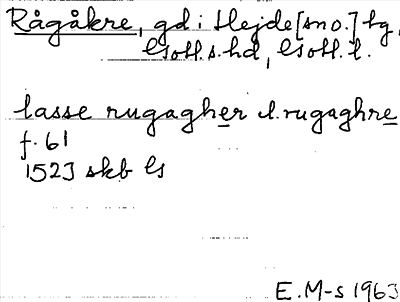 Rågåkre, gd i Hejde [sn o.] tg,
Gotl. s. hd, Gotl. l.
lasse rugagher l. rugaghre
f. 61
1523 skb Gs
E. M-s 1963